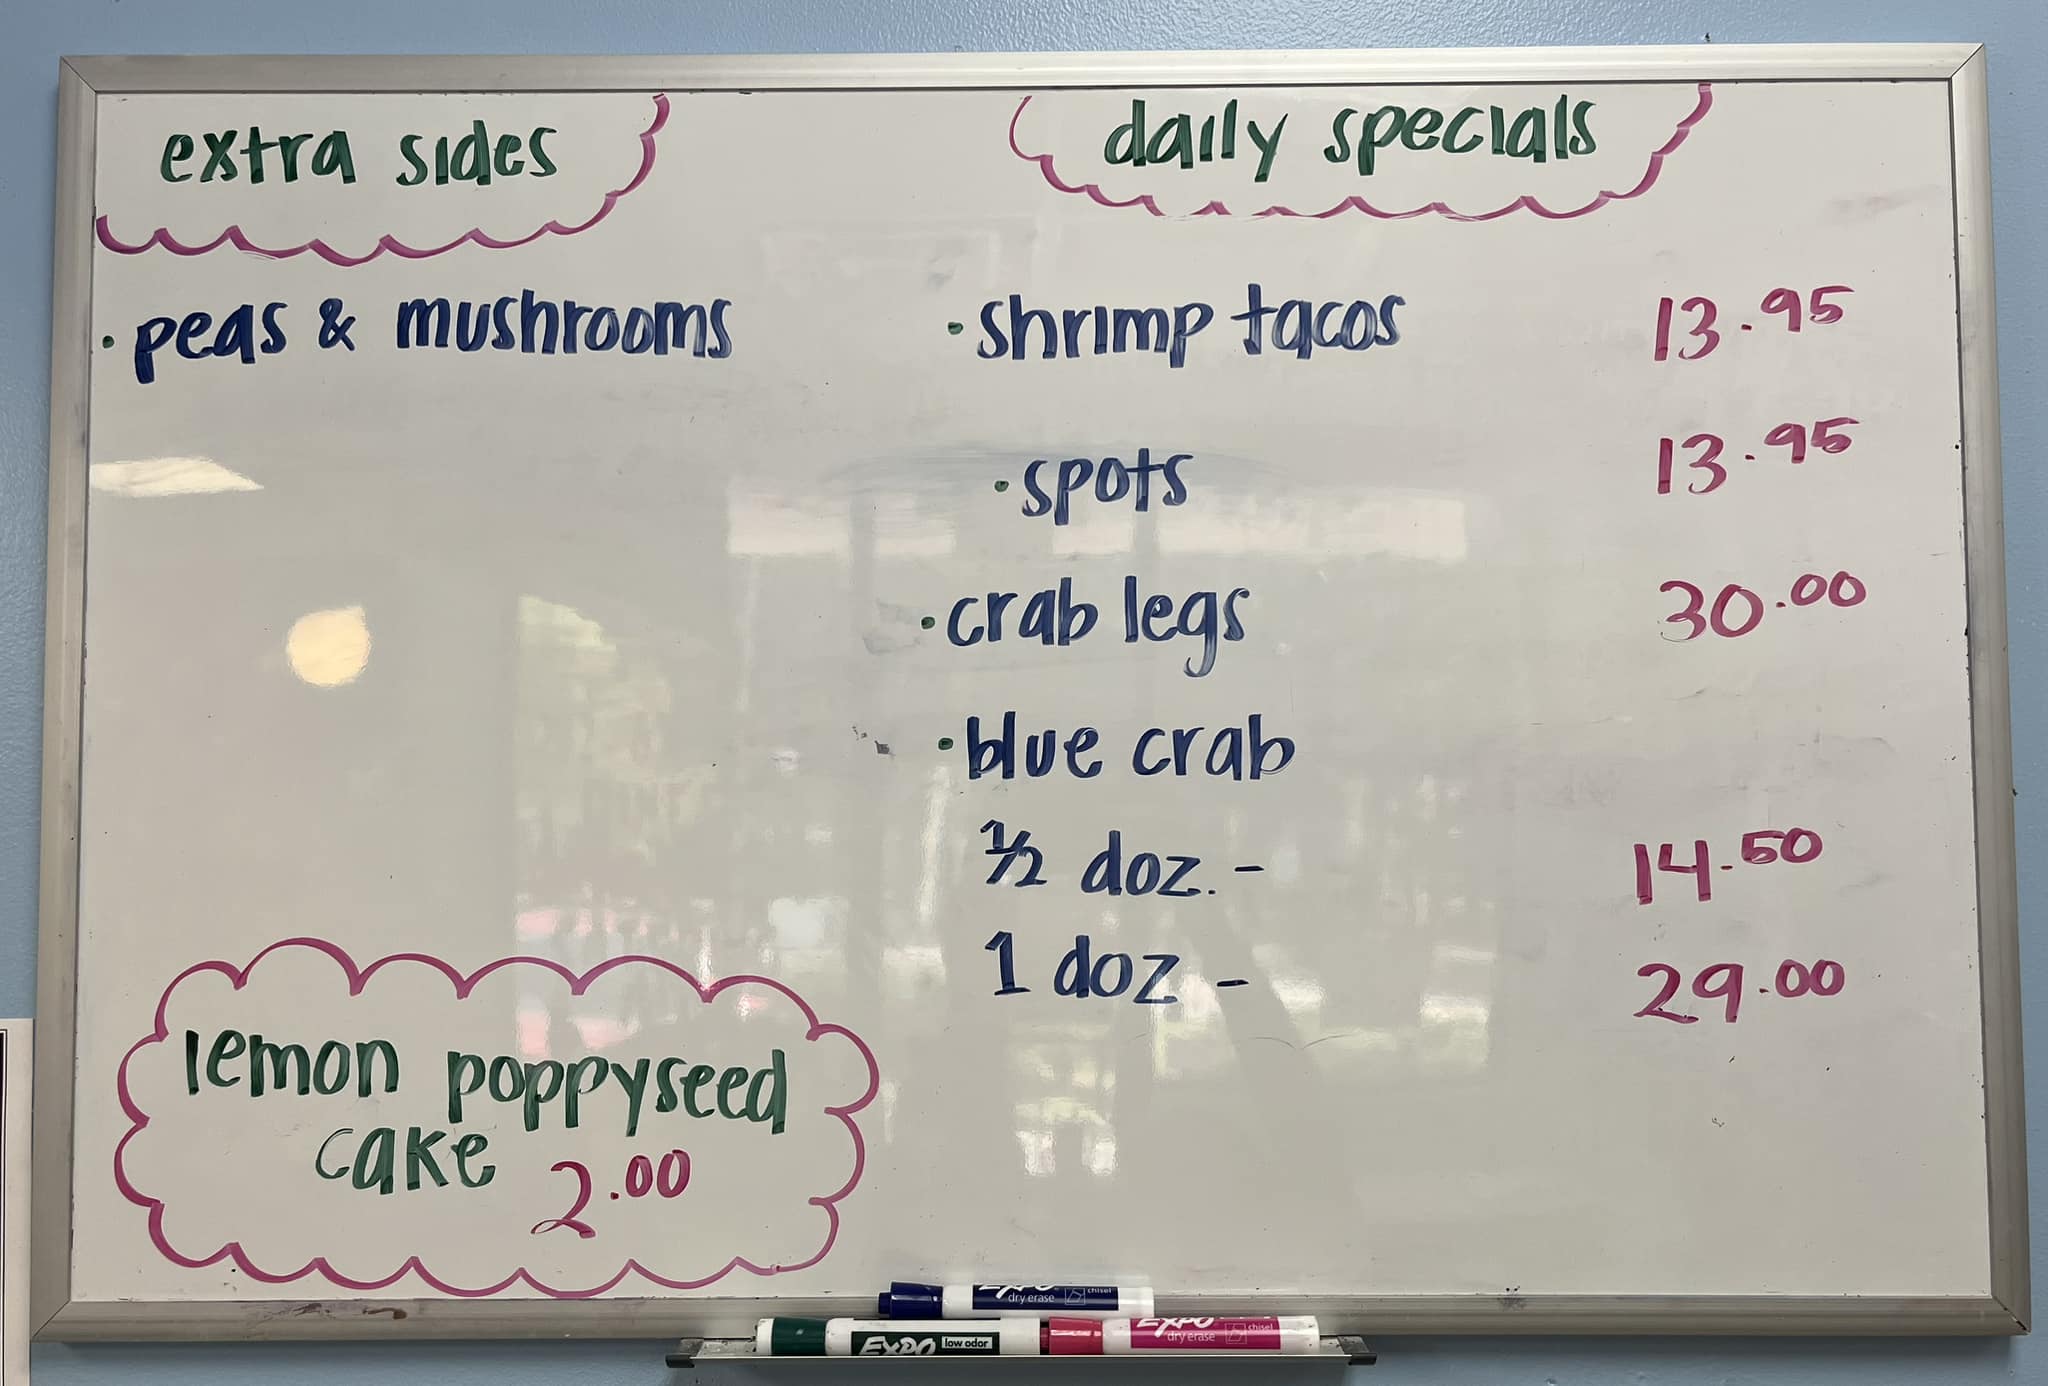 extra sides
• peas & mushrooms
lemon poppyseed
cake 2.00
daily specials
• shrimp tacos 13.95
• spots 13.95
• crab legs 30.00
• blue crab
½ doz. - 14.50
1 doz - 29.00
EXPO
dry erase chisel
EXPO low odor
EXPO
dry erase chisel